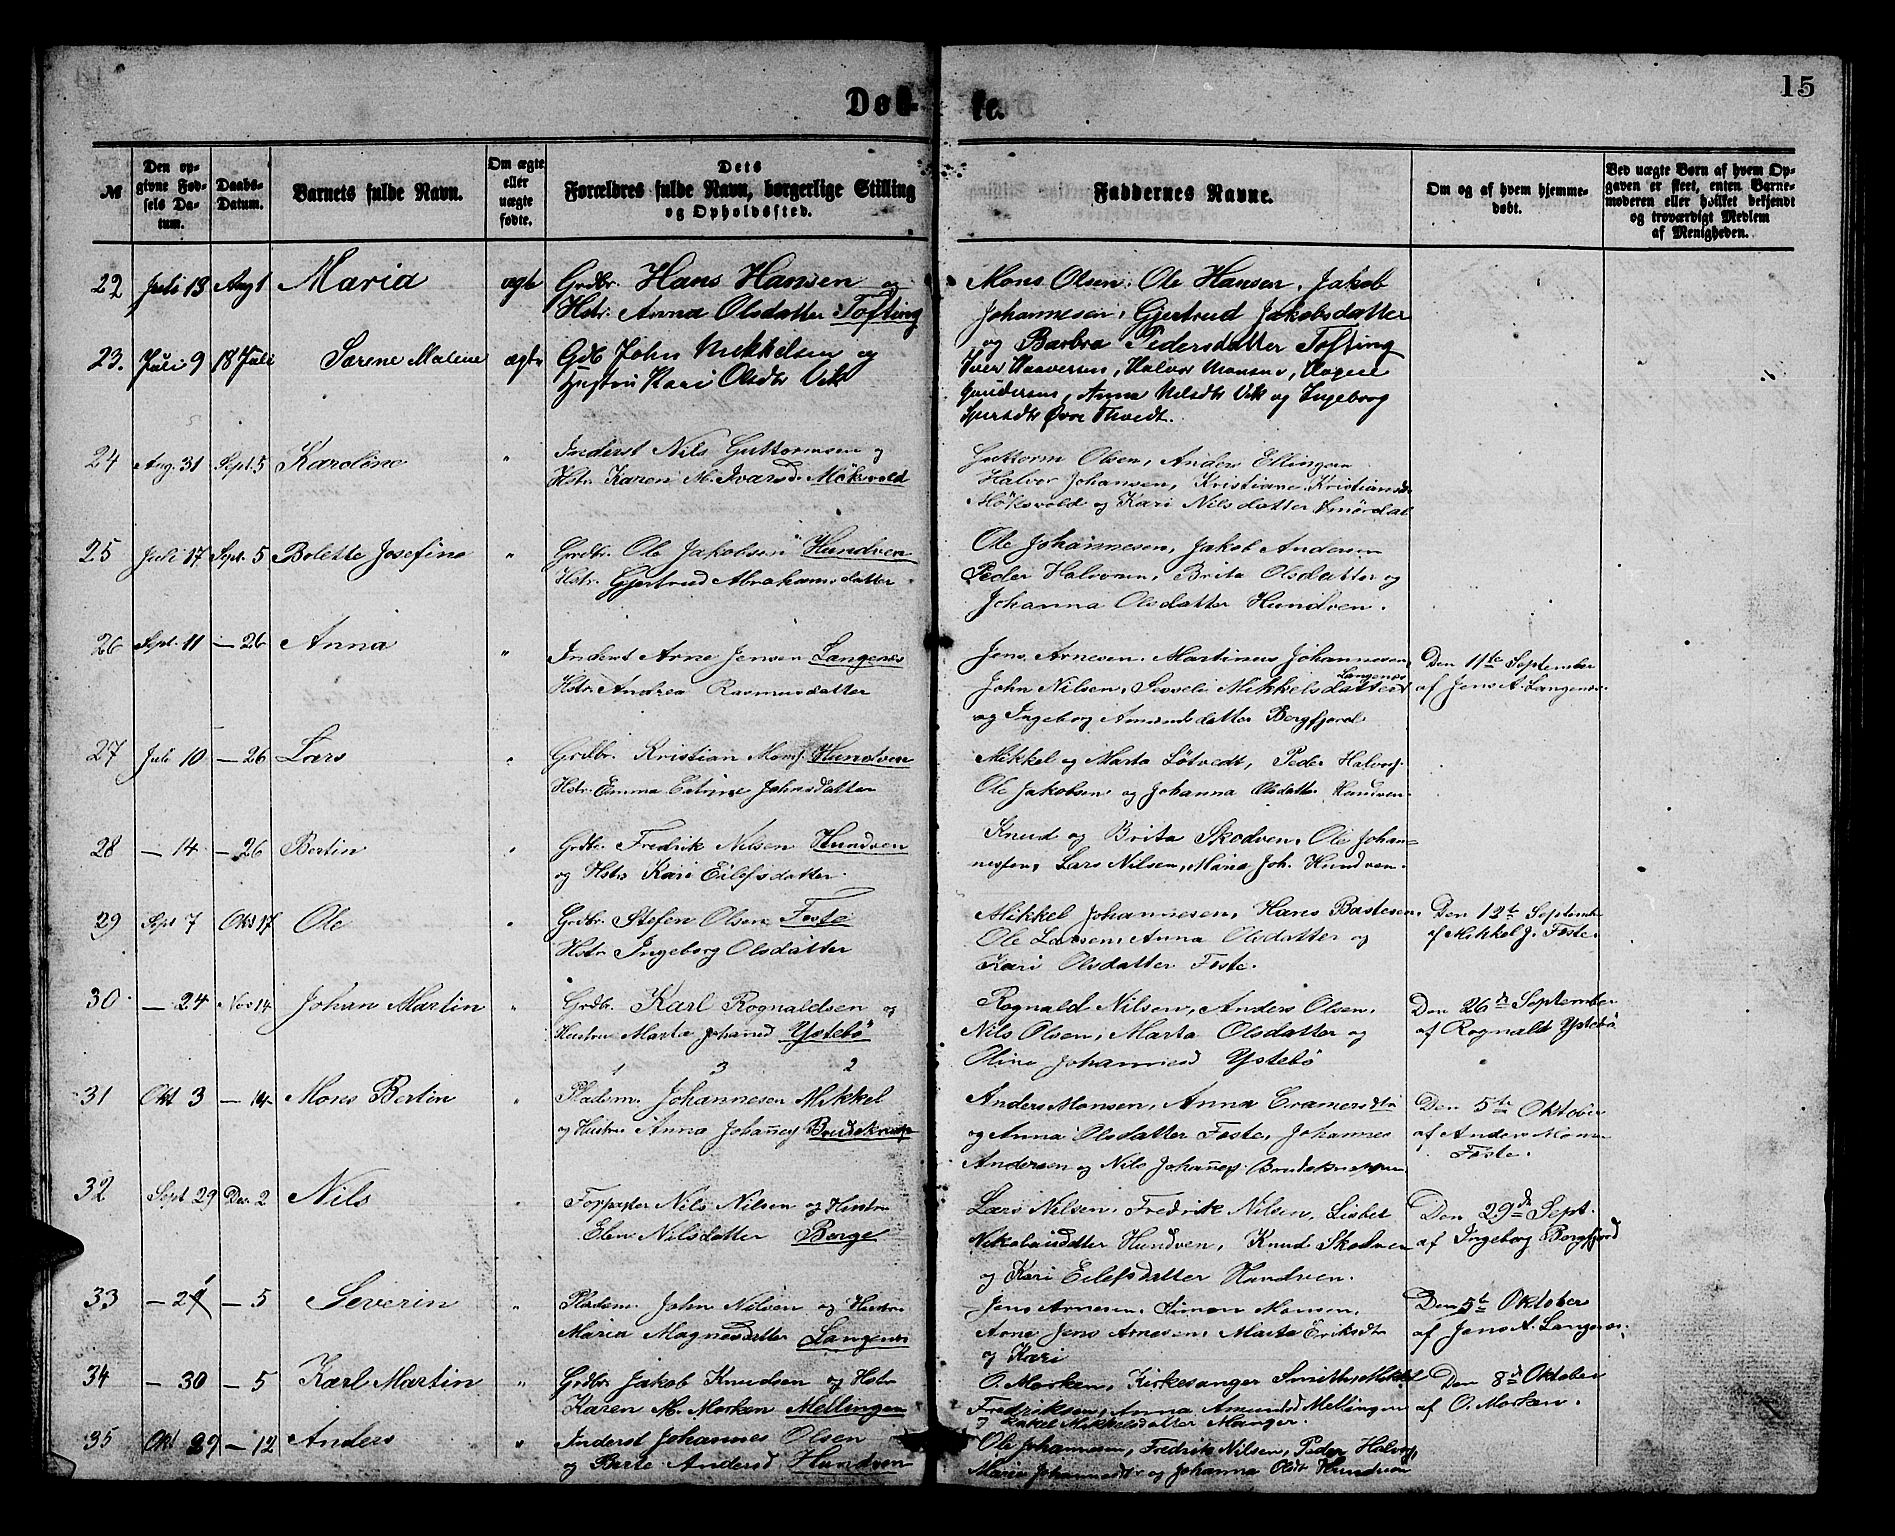 15
Døbte.
№
Den opgivne Fødsels Datum.
Daabs-Datum.
Barnets fulde Navn.
Om ægte eller uægte fødte.
Dets Forældres fulde Navn, borgerlige Stilling og Opholdssted.
Faddernes Navne.
Om og af hvem hjemmedøbt.
Ved uægte Børn af hvem Opgaven er skeet, enten Barnemoderen eller hvilket bekjendt og troværdigt Medlem af Menigheden.
22 Juli 13 Aug 1 Maria ægte Grdbr. Hans Hansen og Mons Olsen, Ole Hansen, Jakob
Hstr. Anna Olsdatter Tofting Johannesen, Gjertrud Jakobsdatter
og Barbra Pedersdatter Tofting
23. Juli 9 18 Juli Sørene Malene ægte Gdb John Mikkelsen og
Hustru Kari Olsdtr Vik Iver Haaversen, Halvor Monsen,
Gundersen, Anna Nilsdtr Vik og Ingeborg
Øvre Tvedt.
24 Aug. 31 Sept. 5 Karoline " Inderst Nils Guttormsen og Guttorm Olsen, Anders Ellingsen
Hstr. Karen M. Ivarsd. Møksvold Halvor Johansen, Kristiane Kristiansdr
Møksvold og Kari Nilsdatter Smørdal
25 Juli 17 Sept. 5 Bolette Josefine " Grdbr. Ole Jakobsen Hundven Ole Johannesen, Jakob Andersen
Hstr. Gjertrud Abrahamsdatter Peder Halvorsen, Brita Olsdatter og
Johanna Olsdatter Hundven.
26 Sept. 11 — 26 Anna " Inderst Arne Jensen Langenes Jens Arnesen, Martinus Johannesen, Den 11te September
Hstr. Andrea Rasmusdatter John Nilsen, Sesseli Mikkelsdatter Langenes af Jens A. Langenes.
og Ingeborg Amundsdatter Bergfjord
27 Juli 10 — 26 Lars " Grdbr. Kristian Mons. Hundven Mikkel og Marta Løtvedt, Peder Halvors.
Hstr. Emma Catrine Johnsdatter Ole Jakobsen og Johanna Olsdatter Hundven.
28 — 14 — 26 Bertin " Grdbr. Fredrik Nilsen Hundven Knud og Brita Skodven, Ole Johan=
og Hstr Kari Eilefsdatter. nessen, Lars Nilsen, Maria Joh. Hundven.
29 Sept 7 Okt 17 Ole " Grdbr. Stefen Olsen Feste Mikkel Johannesen, Hans Bastesen, Den 12te September
Hstr. Ingeborg Olsdatter Ole Larsen, Anna Olsdatter og af Mikkel J. Feste.
Kari Olsdatter Feste.
30 — 24 Nov 14 Johan Martin " Grdbr. Karl Rognaldsen og Rognald Nilsen, Anders Olsen, Den 26de September
Hustru Marta Johannesd Ystebø Nils Olsen, Marta Olsdatter og af Rognald Ystebø
Olina Johannesd Ystebø
1 3 2
31 Okt 3 — 14 Mons Bertin " Pladsm. Johannesen Mikkel Anders Monsen, Anna Cramersdtr Den 5te Oktober
og Hustru Anna Johannesd og Anna Olsdatter Feste, Johannes af Anders Monsen
Andersen og Nils Johannes. Feste.
32 Sept 29 Des. 2 Nils " Nils Nilsen og Hustru Lars Nilsen, Fredrik Nilsen, Lisbet Den 29de Sept.
Elen Nilsdatter Berge Nikolaisdatter Hundven, Knud Skodven af Ingeborg Bergfjord
og Kari Eilefsdatter Hundven.
33 — 2 — 5 Severin " Pladsm. John Nilsen og Hustru Jens Arnesen, Simon Monsen, Den 5te Oktober
Maria Magnesdatter Langenes Arne Jens Arnesen, Marta Eriksdtr af Jens A. Langenes.
og Kari
34 — 30 — 5 Karl Martin " Grdbr Jakob Knudsen og Hstr O. Morken, Kirkesanger Smith, Mikkel Den 8de Oktober
Karen M. Morken Mellingen Fredriksen, Anna Amundsd Mellingen af O. Morken.
og Rakel Mikkelsdatter Manger.
35 Okt 29 — 12 Anders " Inderst Johannes Olsen Ole Johannesen, Fredrik Nilsen, Peder Halvors.
og Berte Andersd Hundven Maria Johannesdtr og Johanna Olsdtr Hundven